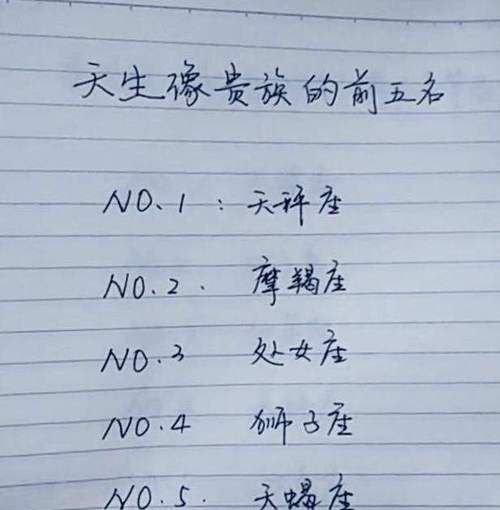 天生像贵族的前五名
NO.1：天秤座
NO.2. 摩羯座
NO.3 处女座
NO.4 狮子座
NO.5. 天蝎座